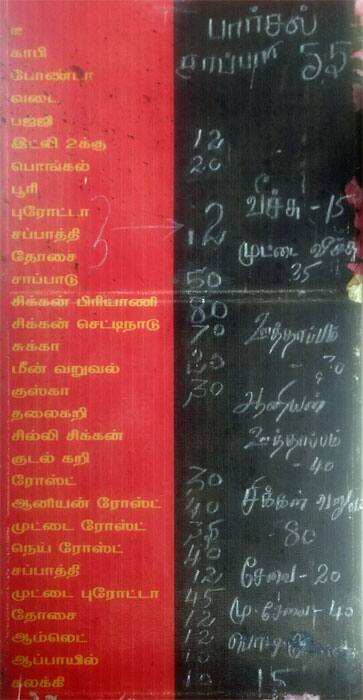 டீ
காபி
போண்டா
வடை
பஜ்ஜி
இட்லி 2க்கு 12
பொங்கல் 20
பூரி
புரோட்டா
சப்பாத்தி 12
தோசை
சாப்பாடு 50
சிக்கன் பிரியாணி 80
சிக்கன் செட்டிநாடு 70
சுக்கா
மீன் வறுவல்
குஸ்கா 30
தலைகறி
சில்லி சிக்கன்
குடல் கறி
ரோஸ்ட் 30
ஆனியன் ரோஸ்ட் 40
முட்டை ரோஸ்ட் 35
நெய் ரோஸ்ட் 40
சப்பாத்தி 12
முட்டை புரோட்டா 45
தோசை 12
ஆம்லெட் 12
ஆப்பாயில் 10
கலக்கி 10
பார்சல்
சாப்பாடு 55
வீச்சு - 15
முட்டை வீச்சு
35
ஊத்தாப்பம்
- 30
ஆனியன்
ஊத்தாப்பம்
- 40
சிக்கன் வறுவல்
- 80
சேவை - 20
மு. சேவை - 40
15